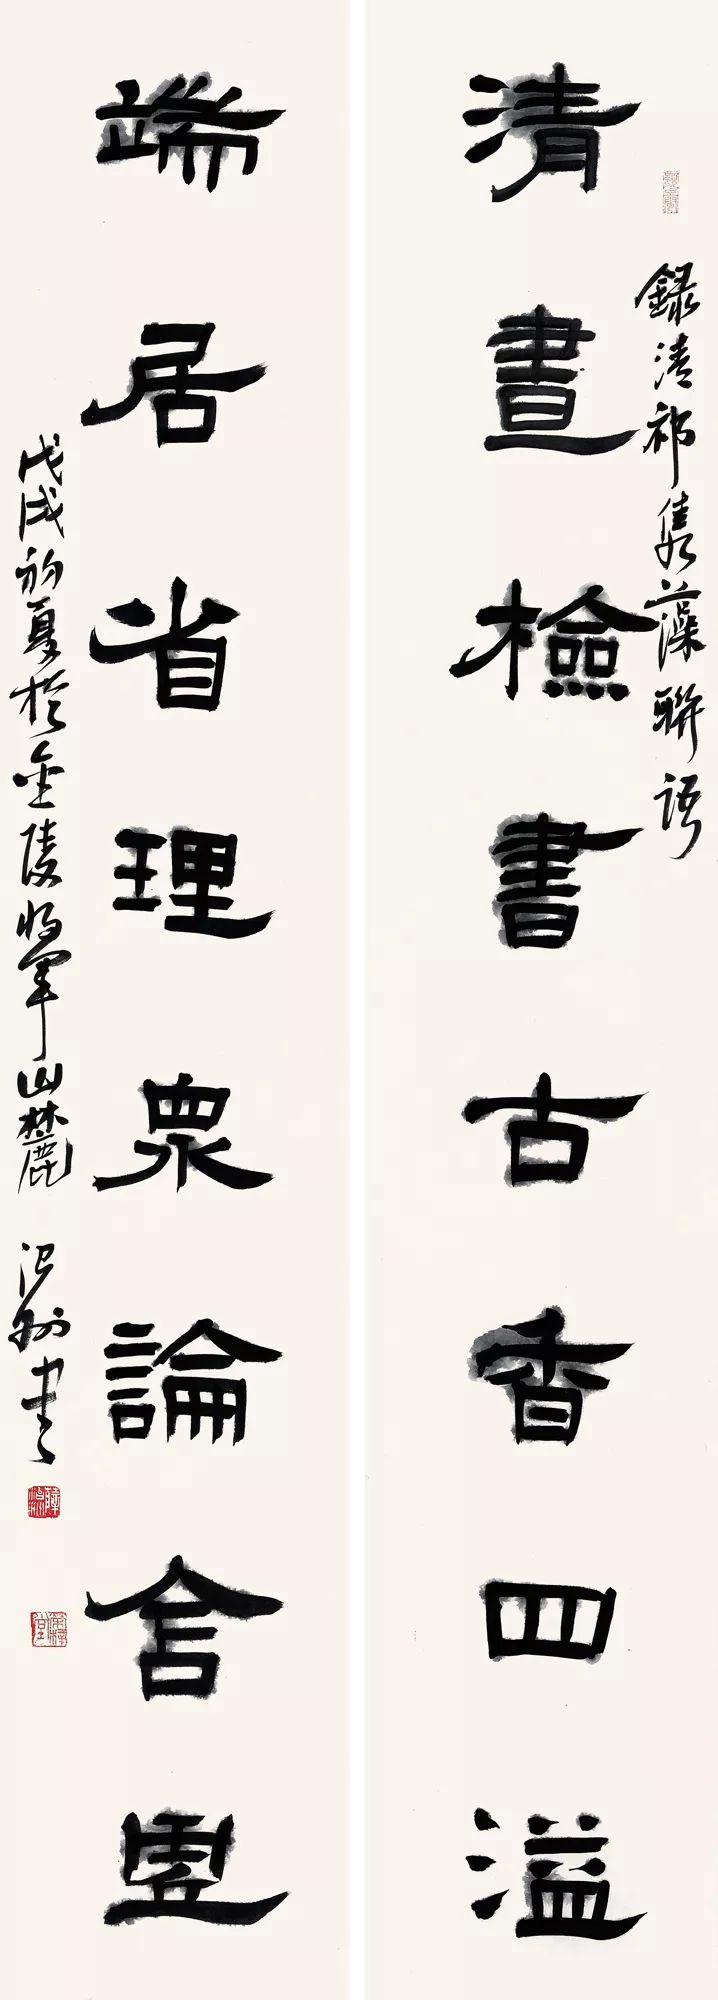 錄清祁隽藻聯語
清晝檢書古香四溢
端居省理眾論含虛
戊戌初夏於金陵將軍山麓 書